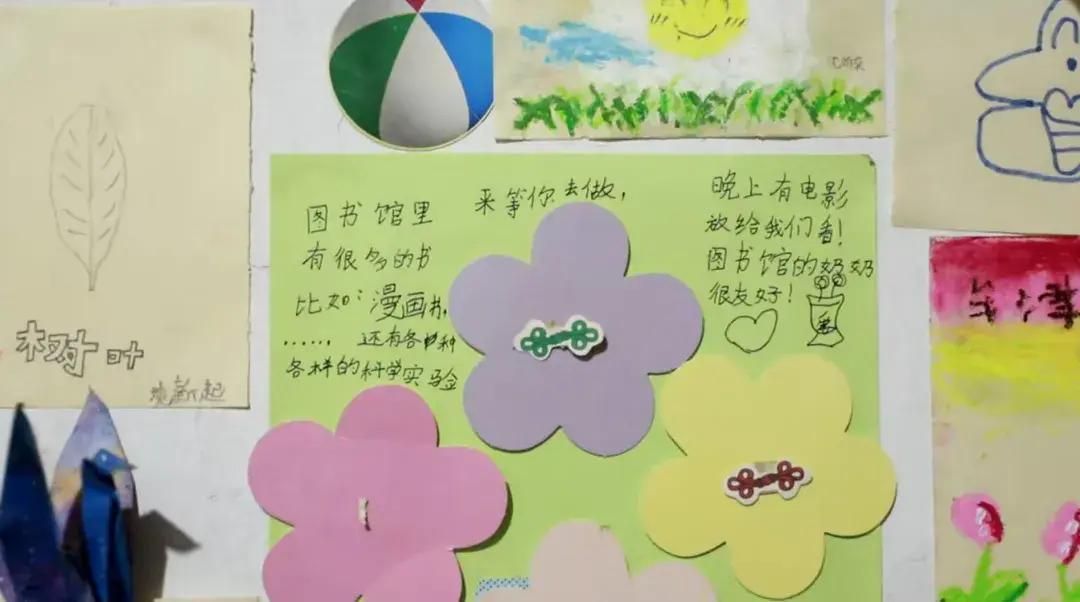 图书馆里
有很多的书
比如：漫画书，
……还有各种
各样的科学实验
来等你去做，
晚上有电影
放给我们看！
图书馆的奶奶
很友好！
树叶